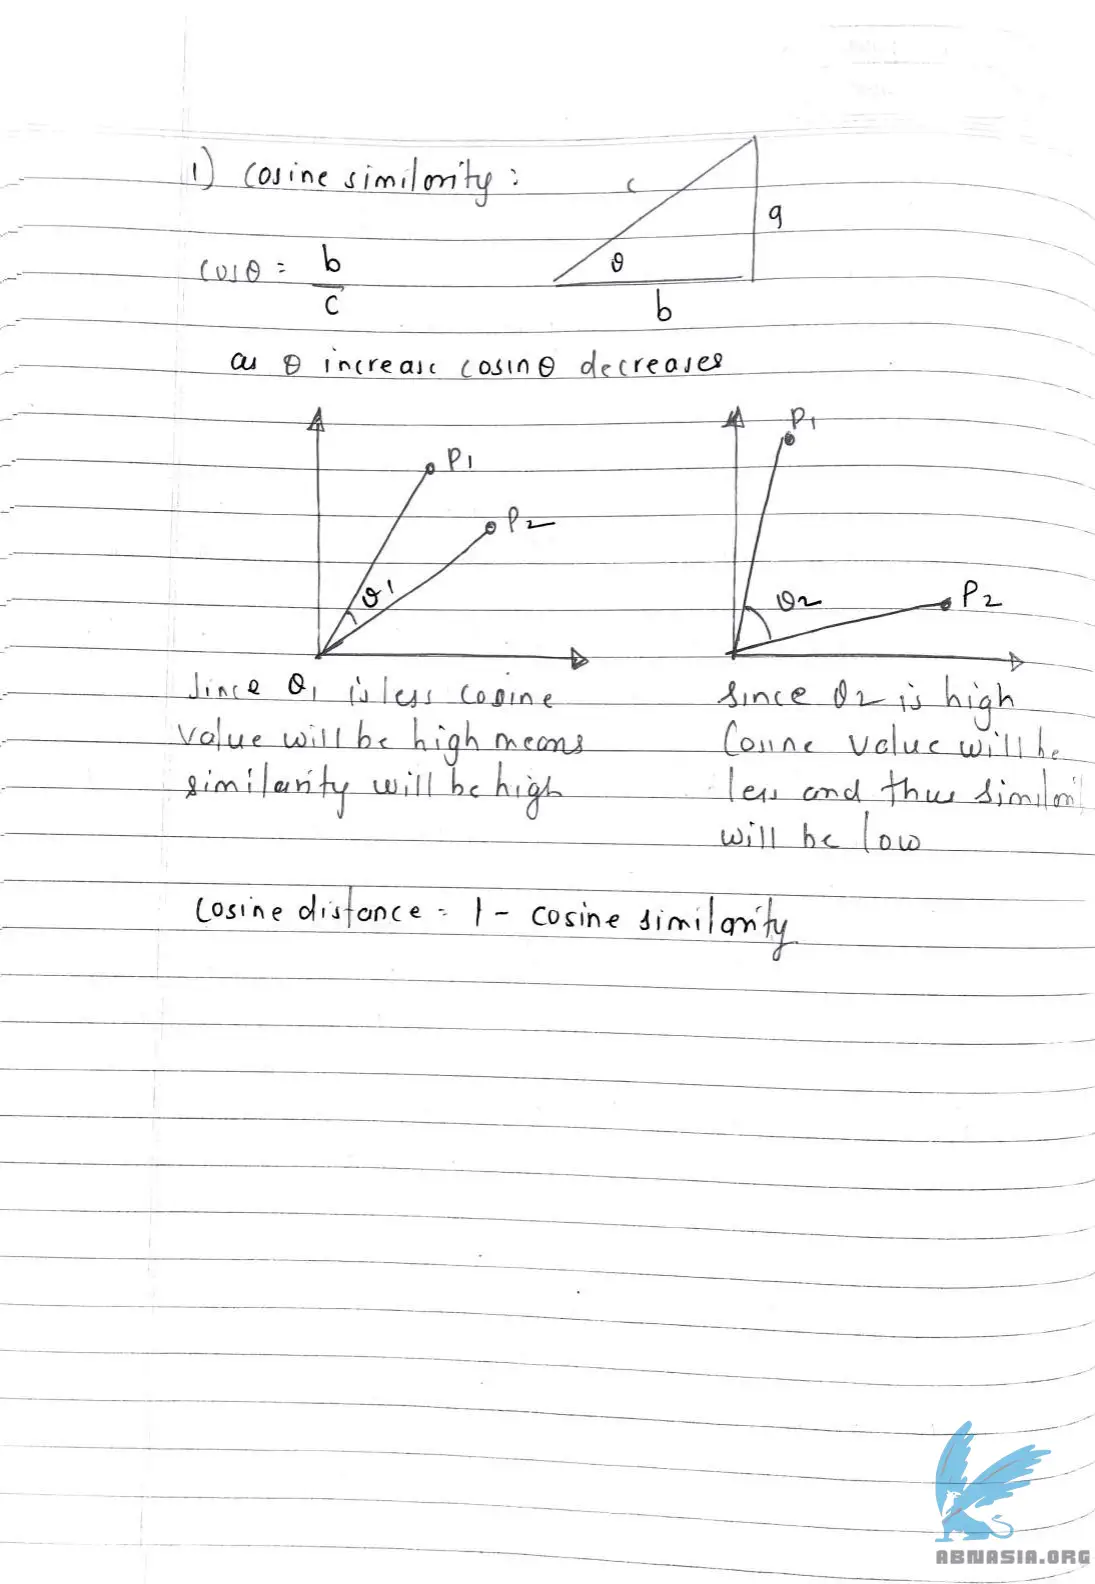 1) cosine similarity :
c
a
cosθ = b
c
θ
b
as θ increase cosinθ decreases
P1
P2
θ1
P1
P2
θ2
Since θ1 is less cosine
value will be high means
similarity will be high
Since θ2 is high
Cosine value will be
less and thus similari
will be low
cosine distance = 1 - cosine similarity
ABNASIA.ORG